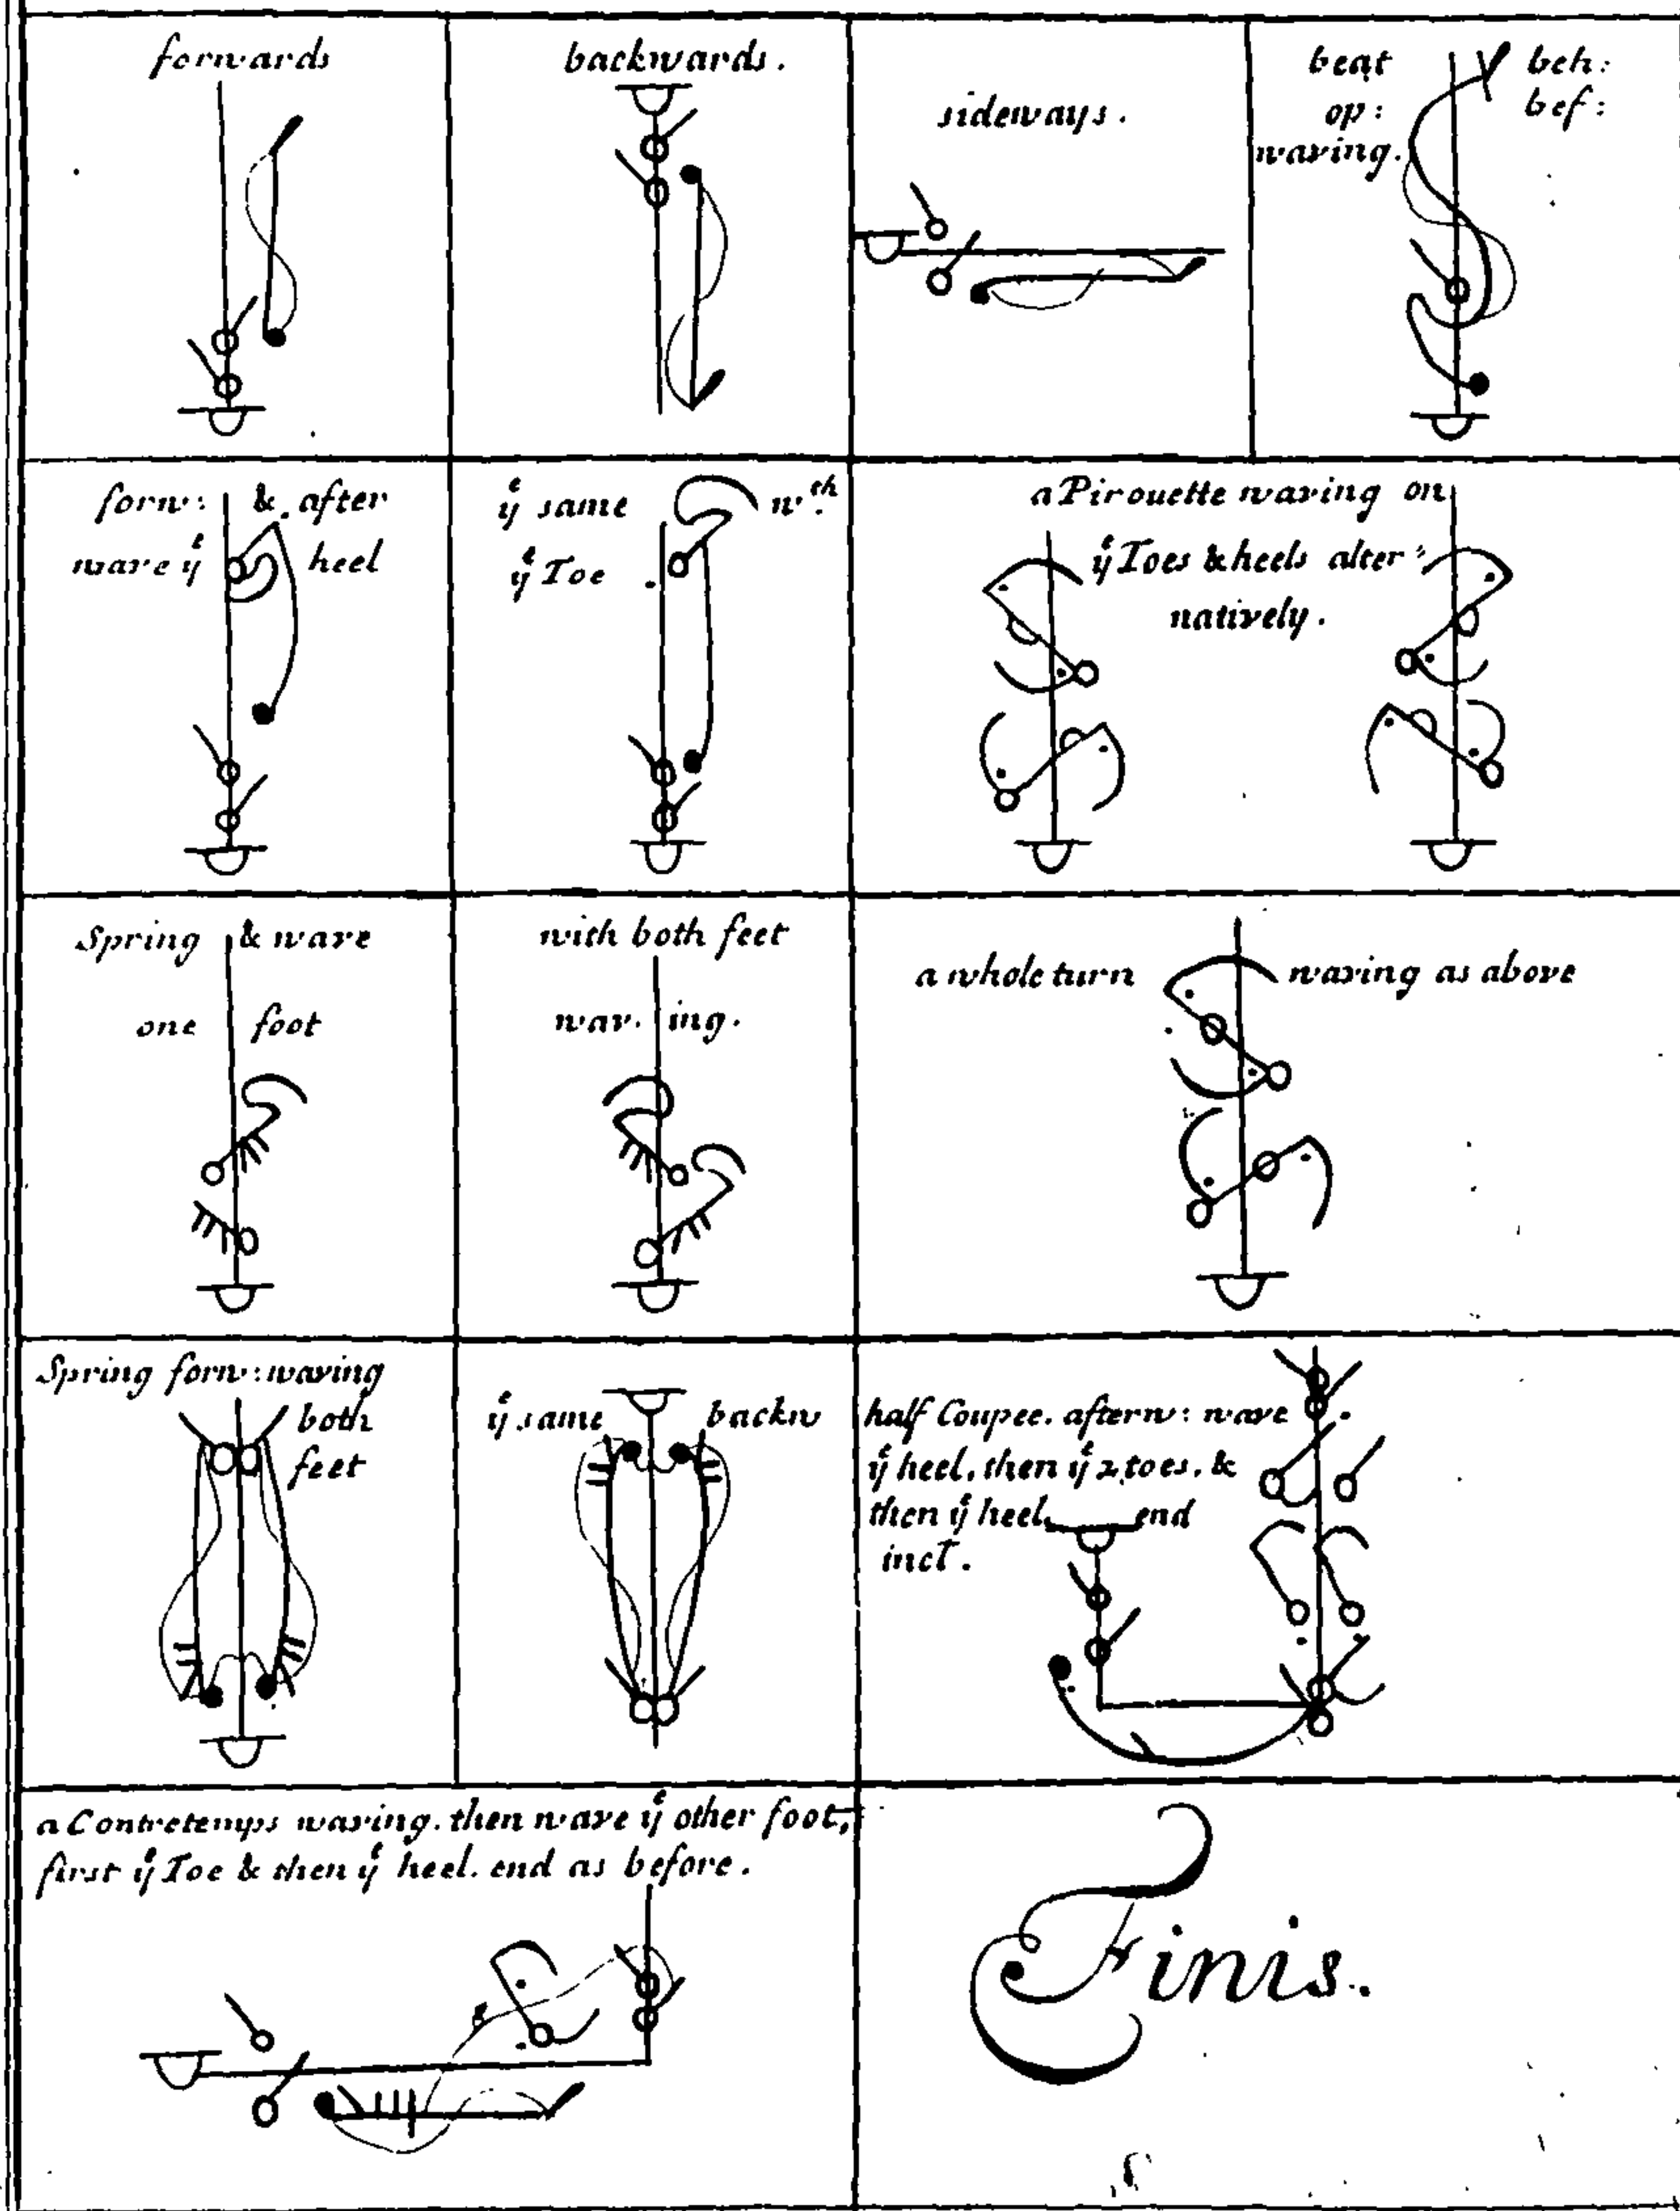 forwards
backwards.
sideways.
beat beh:
op: bef:
waving.
forw: & after
wave yͤ heel
yͤ same wͭͪ.
yͤ Toe
a Pirouette waving on
yͤ Toes & heels alter-
natively.
Spring & wave
one foot
with both feet
wav. ing.
a whole turn waving as above
Spring forw: waving
both
feet
yͤ same backw
half Coupee. afterw: wave
yͤ heel, then yͤ 2 toes, &
then yͤ heel end
incl.
a Contretemps waving. then wave yͤ other foot,
first yͤ Toe & then yͤ heel. end as before.
Finis.